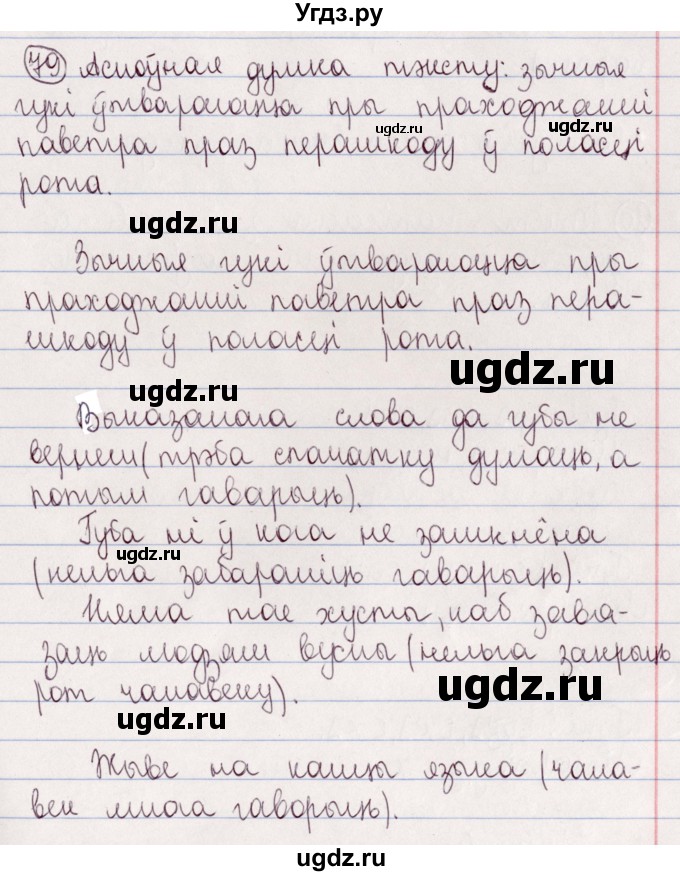 Угдз.ру
79 Асноўная думка тэксту: зычныя
гукі ўтвараюцца пры праходжанні
ugdz.ru
ugdz.ru
паветра праз перашкоду ў поласці
рота.
ugdz.ru
Зычныя гукі ўтвараюцца пры
праходжанні паветра праз пера-
шкоду ў поласці рота.
ugdz.ru
ugdz.ru
Выказанага слова да губы не
вернеш (трэба спачатку думаць, а
потым гаварыць).
Губа ні ў кога не замкнёна
ugdz.ru
(нельга забараніць гаварыць).
Няма тае хусты, каб завя-
заць людзям вусны (нельга закрыць
рот чалавеку).
ugdz.ru
ugdz.ru
Жыве на канцы языка (чала-
век многа гаворыць).
ugdz.ru